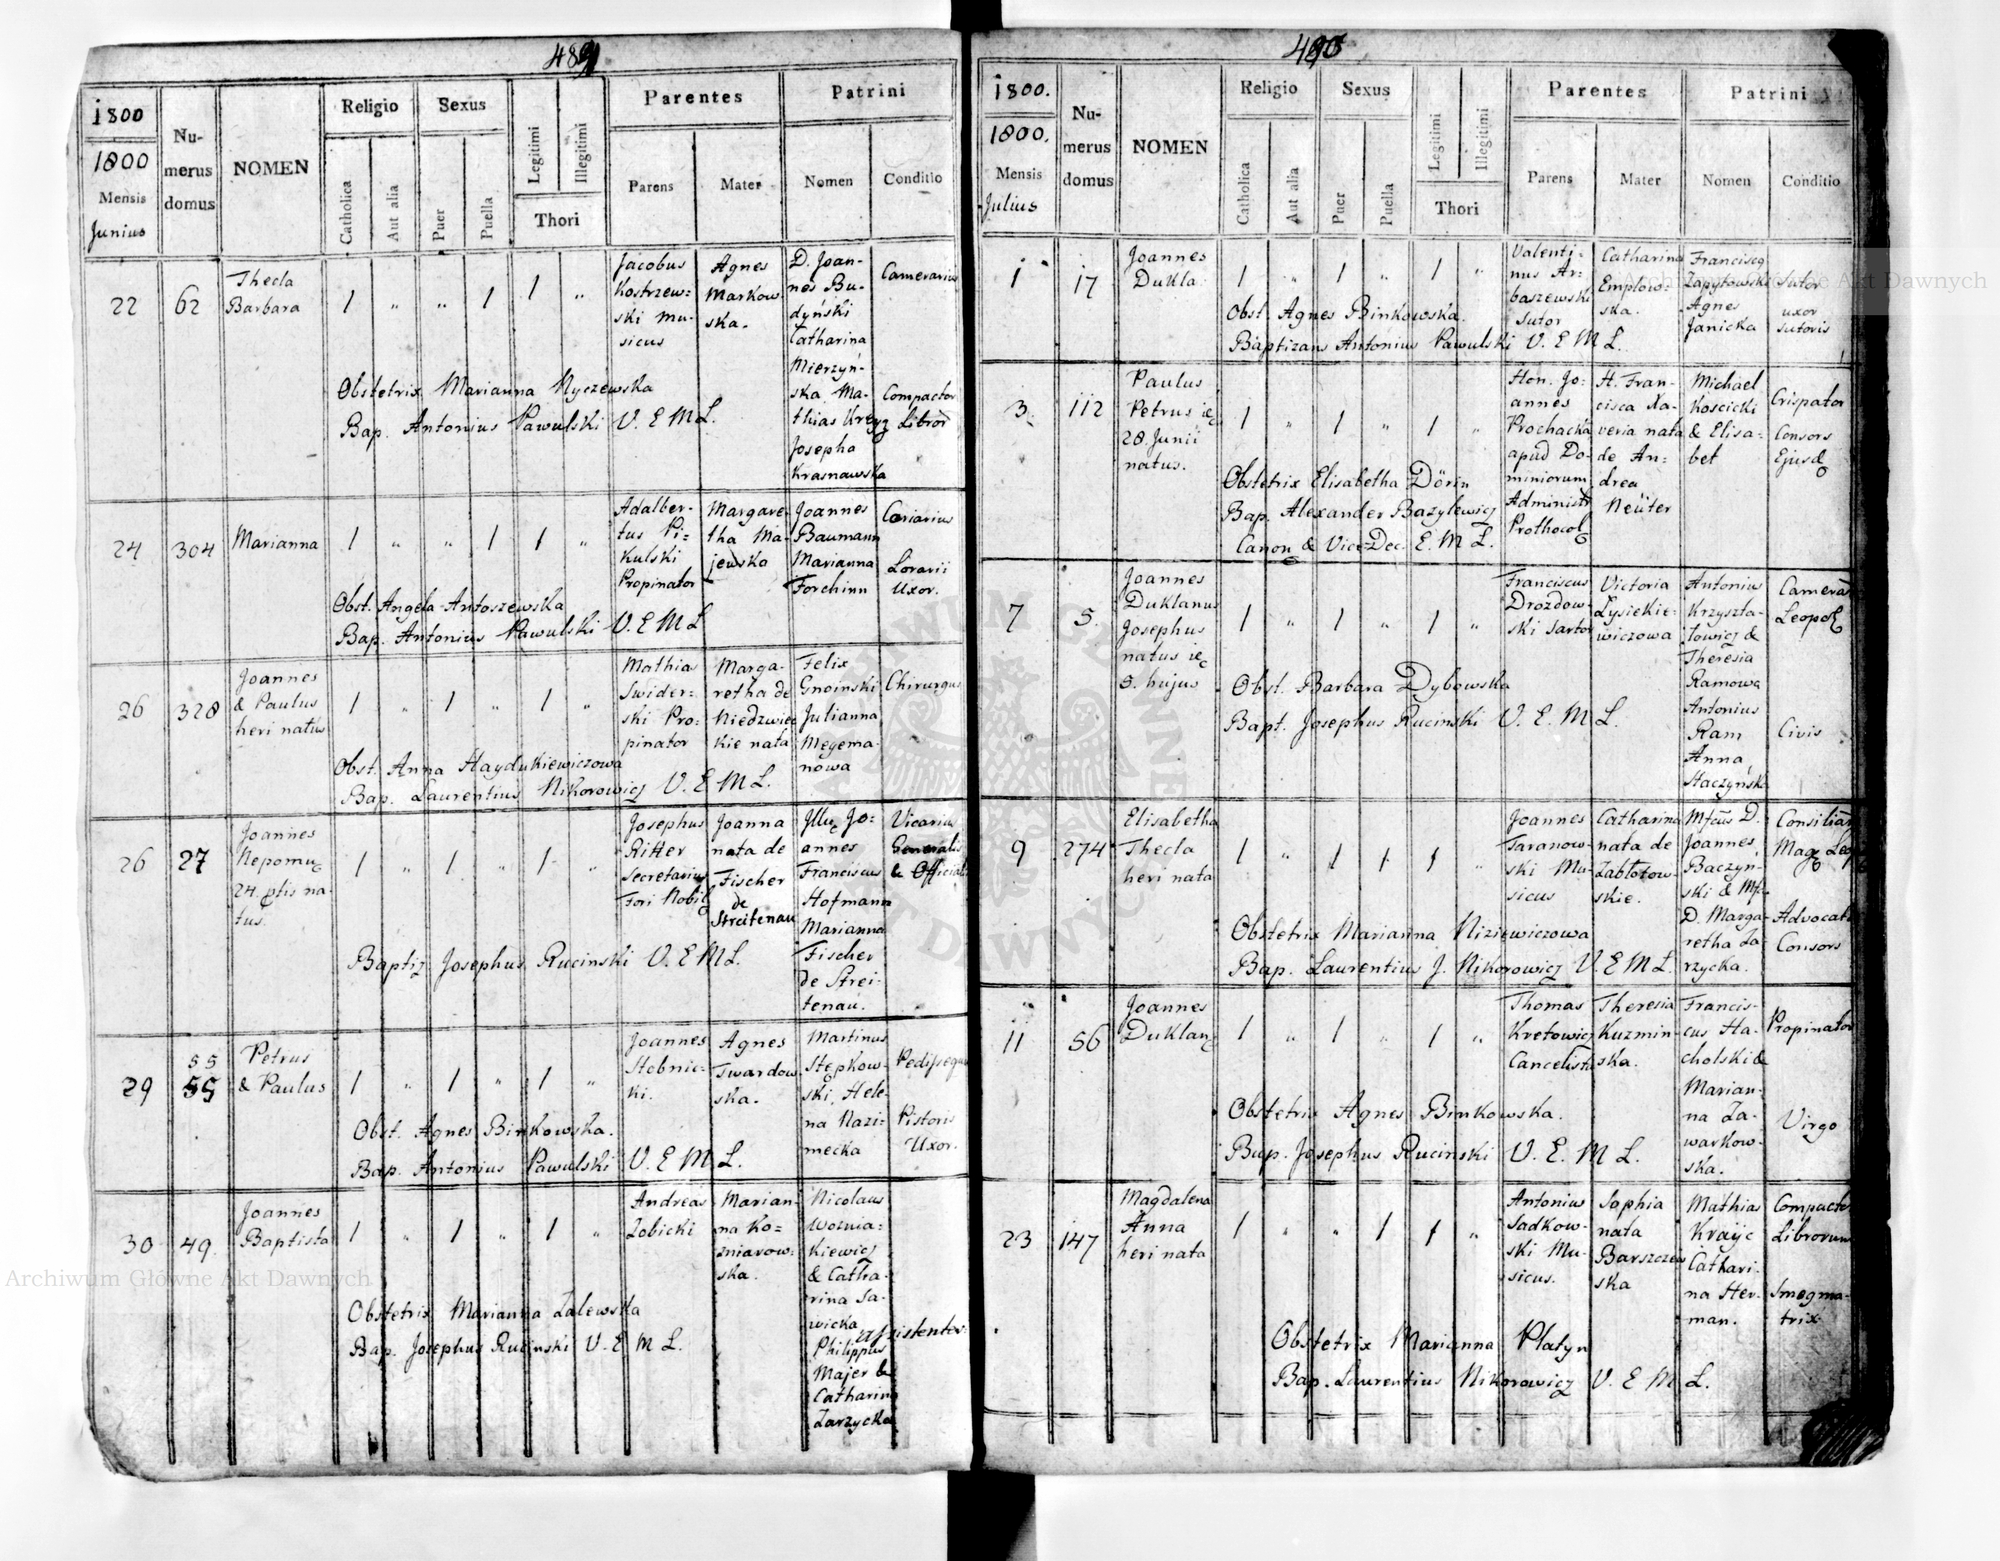 489
1800
1800
Mensis
Junius
Nu-
merus
domus
NOMEN
Religio
Catholica
Aut alia
Sexus
Puer
Puella
Legitimi
Illegitimi
Thori
Parentes
Parens
Mater
Patrini
Nomen
Conditio
22
62
Thecla
Barbara
1 " " 1 1 "
Jacobus
Kostrzew-
ski Mu-
sicus
Agnes
Markow-
ska.
D. Joan-
nes Bu-
dyński
Catharina
Mierzyń-
ska Ma-
thias
Josepha
Krasnawska
Camerarius
Compactor
Libror
Obstetrix Marianna Nyczewska
Bap. Antonius Pawulski V. E M L.
24
304
Marianna
1 " " 1 1 "
Adalber-
tus Pi-
kulski
Propinator
Margare-
tha Ma-
jewska
Joannes
Baumann
Marianna
Forchinn
Coriarius
Lorarii
Uxor.
Obst. Angela Antoszewska
Bap. Antonius Pawulski V. E M L
26
328
Joannes
& Paulus
heri natus
1 " 1 " 1 "
Mathias
Swider-
ski Pro-
pinator
Marga-
retha de
Niedzwiec
kie nata
Felix
Gnoinski
Julianna
Meyema-
nowa
Chirurgus
Obst. Anna Haydukiewiczowa
Bap. Laurentius Nikorowicz V. E M L.
26
27
Joannes
Nepomuc
24 ptis na-
tus.
1 " 1 " 1 "
Josephus
Ritter
Secretarius
Fori Nobil
Joanna
nata de
Fischer
de
Streitenau
Jo-
annes
Franciscus
Hofmann
Marianna
Fischer
de Strei-
tenau.
Vicarius
Generalis
& Officialis
Baptiz Josephus Rucinski V. E M L.
29
55
55
Petrus
& Paulus
1 " 1 " 1 "
Joannes
Stobnic-
ki.
Agnes
Twardow
ska.
Martinus
Stępkow-
ski, Hele-
na Nazi-
mecka
Pedissequus
Pistoris
Uxor.
Obst. Agnes Binkowska.
Bap. Antonius Pawulski V. E M L.
30
49
Joannes
Baptista
1 " 1 " 1 "
Andreas
Zobicki
Marian-
na Ko-
zniarow-
ska.
Nicolaus
Woznia-
kiewicz
& Catha-
rina Sa-
wicka
Philippus
Majer &
Catharina
Zarzycka
assistentes
Obstetrix Marianna Zalewska
Bap. Josephus Rucinski V. E M L.
490
1800.
1800.
Mensis
Julius
Nu-
merus
domus
NOMEN
Religio
Catholica
Aut alia
Sexus
Puer
Puella
Legitimi
Illegitimi
Thori
Parentes
Parens
Mater
Patrini
Nomen
Conditio
1
17
Joannes
Dukla.
1 " 1 " 1 "
Valenti-
nus Ar-
baszewski
Sutor
Catharina
Emplow-
ska.
Francisc
Zapytowski
Agnes
Janicka
Sutor
uxor
sutoris
Obst. Agnes Binkowska.
Baptizans Antonius Pawulski V. E M L.
3
112
Paulus
Petrus
28 Junii
natus.
1 " 1 " 1 "
Hon. Jo-
annes
Prochacka
apud Do-
miniorum
Administr
Prothocol
H. Fran-
cisca Xa-
veria nata
de An-
drea
Neüter
Michael
Koscicki
& Elisa-
bet
Crispator
Consors
Ejusd
Obstetrix Elisabetha Dörin
Bap. Alexander Bazylewicz
Canon & Vice-Dec. E. M L.
7
5.
Joannes
Duklanus
Josephus
natus
5. hujus
1 " 1 " 1 "
Franciscus
Drozdow-
ski Sartor
Victoria
Lysiekie-
wiczowa
Antonius
Krzyszta-
towicz &
Theresia
Ramowa
Antonius
Ram
Anna
Haczyńsk
Camerar
Leopol
Civis
Obst. Barbara Dybowska
Bapt. Josephus Rucinski V. E. M L.
9
274
Elisabetha
Thecla
heri nata
1 " 1 1 1 "
Joannes
Taranow-
ski Mu-
sicus
Catharina
nata de
Zabłotow-
skie.
D.
Joannes
Baczyń-
ski &
D. Marga-
retha Za-
rzycka.
Consiliar
Mag. Leop
Advocat
Consors
Obstetrix Marianna Niziewiczowa
Bap. Laurentius J. Nikorowicz V. E M L.
11
56
Joannes
Duklan
1 " 1 " 1 "
Thomas
Kretowicz
Cancelista
Theresia
Kuzmin-
ska.
Francis-
cus Ha-
cholski &
Marian-
na Za-
warkow-
ska.
Propinator
Virgo
Obstetrix Agnes Binkowska.
Bap. Josephus Rucinski V. E. M L.
23
147
Magdalena
Anna
heri nata
1 " " 1 1 "
Antonius
Sadkow-
ski Mu-
sicus.
Sophia
nata
Barszczew
ska
Mathias
Krayc
Cathari-
na Her-
man.
Compactor
Librorum
Smegma-
trix
Obstetrix Marianna Platyn
Bap. Laurentius Nikorowicz V. E M L.
Archiwum Główne Akt Dawnych
Archiwum Główne Akt Dawnych
ARCHIWUM GŁÓWNE AKT DAWNYCH